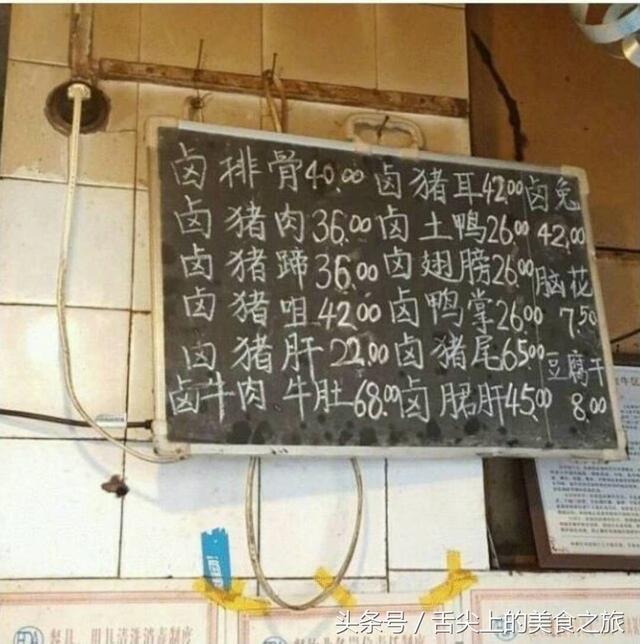 卤排骨40.00 卤猪耳42.00 卤兔
卤猪肉36.00 卤土鸭26.00 42.00
卤猪蹄36.00 卤翅膀26.00 脑花
卤猪咀42.00 卤鸭掌26.00 7.50
卤猪肝22.00 卤猪尾65.00 豆腐干
卤牛肉 牛肚68.00 卤䐃肝45.00 8.00
餐具、用具清洗消毒制度
头条号 / 舌尖上的美食之旅